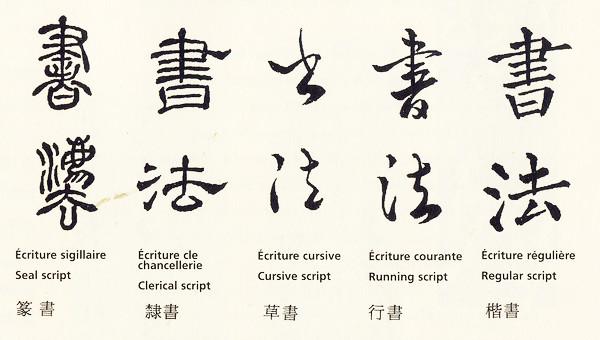 書
法
Écriture sigillaire
Seal script
篆書
書
法
Écriture cle
chancellerie
Clerical script
隸書
書
法
Écriture cursive
Cursive script
草書
書
法
Écriture courante
Running script
行書
書
法
Écriture régulière
Regular script
楷書